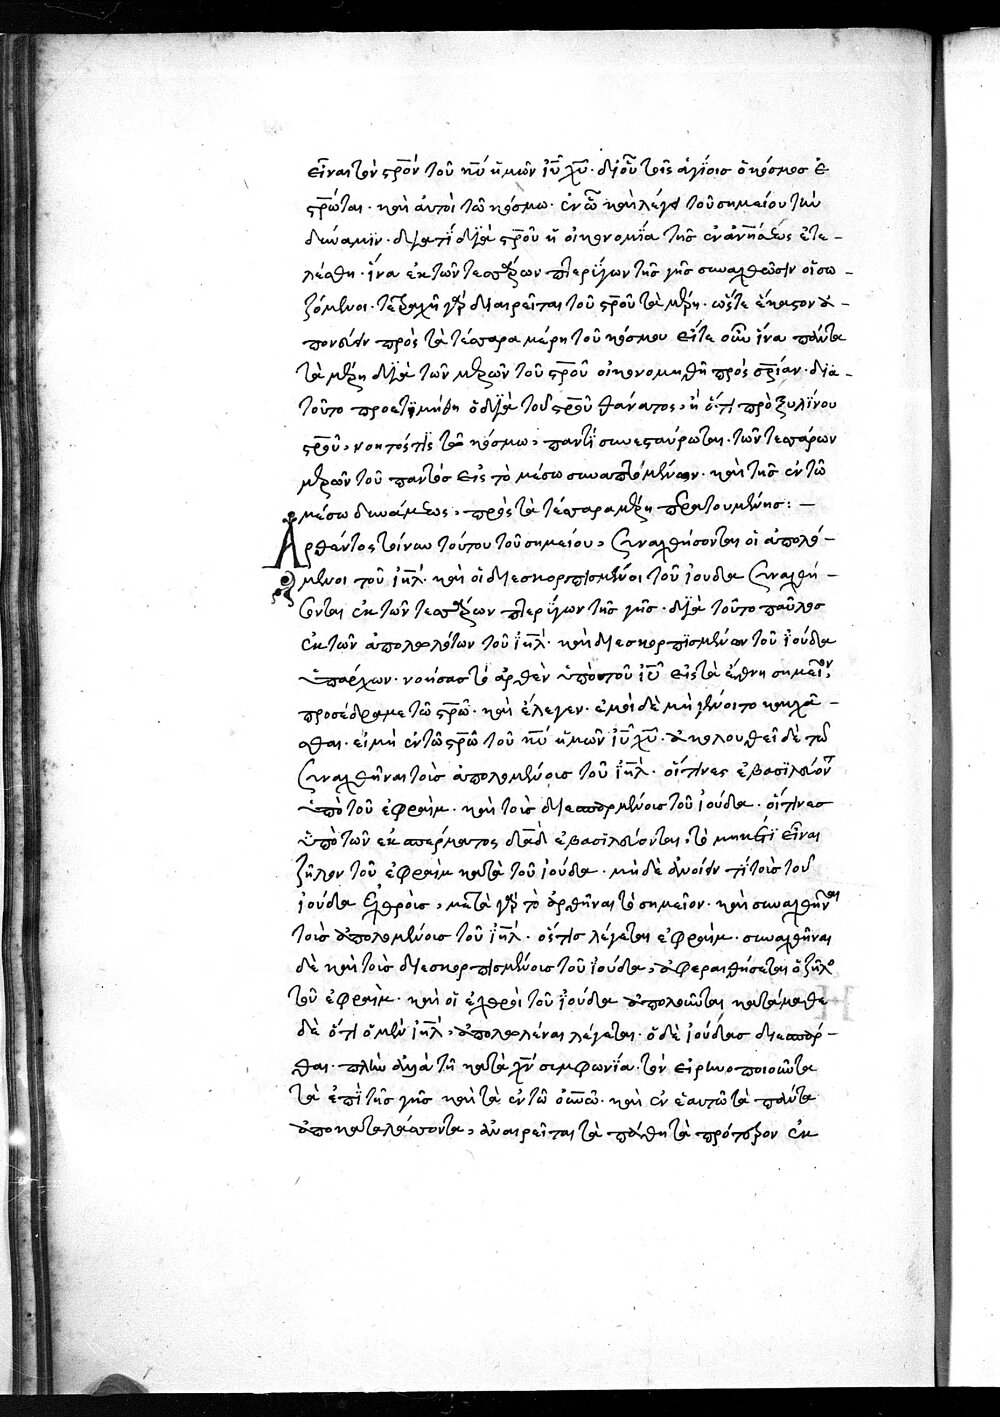 εἶναι τὸν στρ̅ον τοῦ κ̅υ ἡμῶν ἰ̅υ χ̅υ. δι' οὗ τοῖς ἁγίοις ὁ κόσμος ἐ
στρ̅ωται. καὶ αὐτοὶ τῷ κόσμω. ἐν ὧ καὶ λέγει τοῦ σημείου τὴν
δύναμιν. διατί διὰ στρ̅οῦ ἡ οἰκονομΐα τῆς ἐναν̅ήσεως ἐτε-
λέσθη. ἵνα ἐκ τῶν τεσσάρων πτερΰγων τῆς γῆς συναχθῶσιν οἱ σω-
ζόμενοι. τετραχῆ γὰρ διαιρεῖται τοῦ στρ̅οῦ τὰ μέρη. ὥστε ἕκαστον ἀ-
πονεύειν πρὸς τὰ τέσσαρα μέρη τοῦ κόσμου εἴτε οὖν ἵνα πάντα
τὰ μέρη διὰ τῶν μερῶν τοῦ στρ̅οῦ οἰκονομηθῆ πρὸς σ̅ρίαν. δια-
τοῦτο προετιμήθη ὁ διὰ τοῦ στρ̅οῦ θάνατος, ἢ ὅτι πρὸ ξυλίνου
στρ̅οῦ, νοητός τις τῶ κόσμω, παντὶ συνεσταύρωται. τῶν τεσσάρων
μερῶν τοῦ παντὸς εἰς τὸ μέσω συναπτομένων. καὶ τῆς ἐν τῶ
μέσω δυνάμεως, πρὸς τὰ τέσσαρα μέρη κρατουμένης: -
Ἀρθέντος τοίνυν τούτου τοῦ σημείου, συναχθήσονται οἱ ἀπολό-
μενοι τοῦ ἰ̅ηλ. καὶ οἱ διεσκορπισμένοι τοῦ ἰούδα συναχθή-
σονται ἐκ τῶν τεσσάρων πτερΰγων τῆς γῆς. διὰ τοῦτο παῦλος
ἐκ τῶν ἀπολωλότων τοῦ ἰ̅ηλ. καὶ διεσκορπισμένων τοῦ ἰούδα
ὑπάρχων. νοήσας τὸ ἀρθὲν ὑπὸ τοῦ ἰ̅υ εἰς τὰ ἔθνη σημεῖον,
προσέδραμε τῶ στρ̅ῶ. καὶ ἔλεγεν. ἐμοὶ δὲ μὴ γένοιτο καυχᾶ-
σθαι. εἰ μὴ ἐν τῶ στρ̅ῶ τοῦ κ̅υ ἡμῶν ἰ̅υ χ̅υ. ἀκολουθεῖ δὲ τῶ
συναχθῆναι τοὺς ἀπολομένους τοῦ ἰ̅ηλ. οἵτινες ἐβασιλεύοντο
ὑπὸ τοῦ ἐφραὶμ. καὶ τοὺς διεσπαρμένους τοῦ ἰούδα. οἵτινες
ὑπὸ τῶν ἐκ σπέρματος δ̅αδ ἐβασιλεύοντο, τὸ μηκέτι εἶναι
ζῆλον τοῦ ἐφραὶμ κατὰ τοῦ ἰούδα. μὴ δὲ ἀνοίειν τί τοῖς τοῦ
ἰούδα ἐχθροῖς, μετὰ γὰρ τὸ ἀρθῆναι τὸ σημεῖον. καὶ συναχθῆναι
τοὺς ἀπολομένους τοῦ ἰ̅ηλ. ὅστις λέγεται ἐφραὶμ. συναχθῆναι
δὲ καὶ τοὺς διεσκορπισμένους τοῦ ἰούδα, ἀφαιρεθήσεται ὁ ζῆλος
τοῦ ἐφραὶμ. καὶ οἱ ἐχθροὶ τοῦ ἰούδα ἀπολοῦνται κατάμαθε
δὲ ὅτι ὁ μὲν ἰ̅ηλ, ἀπολωλέναι λέγεται. ὁ δὲ ἰούδας διεσπάρ-
θαι. πλὴν ἀλλὰ τῆ κατὰ χ̅ν συμφωνία. τὸν εἰρηνοποιοῦντα
τὰ ἐπὶ τῆς γῆς καὶ τὰ ἐν τῶ ο̅υνῶ. καὶ ἐν ἑαυτῶ τὰ πάντα
ἀποκαταλάσσοντα, ἀναιρεῖται τὰ πάθη τὰ πρότερον ἐκ